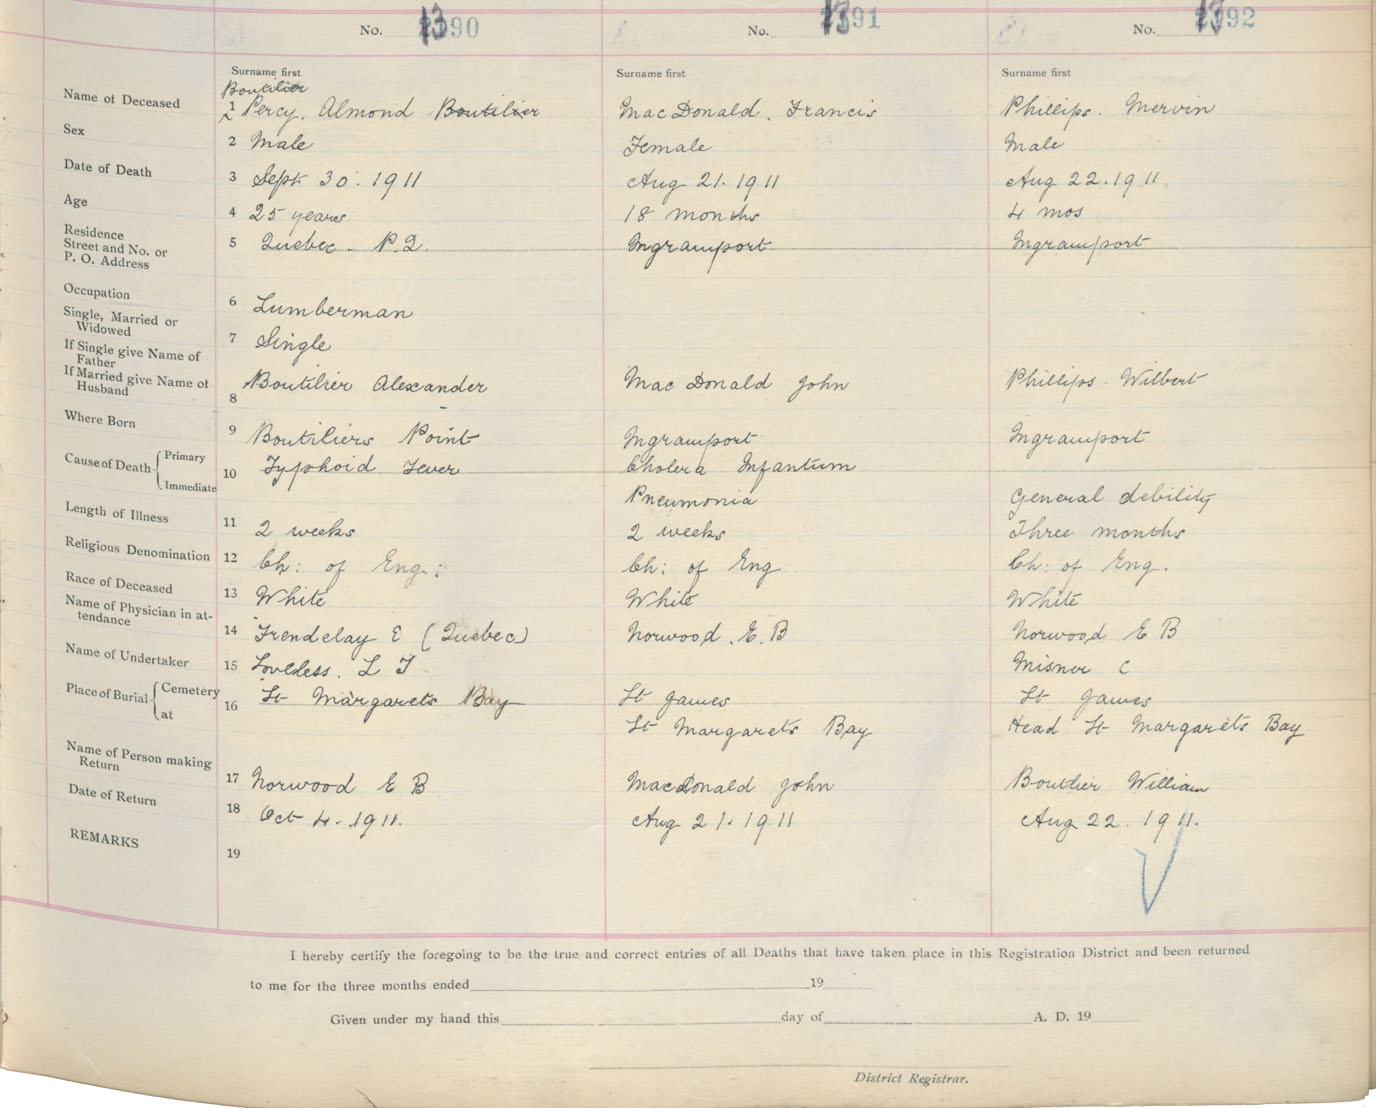 No. 1390 No. 1391 No. 1392
Surname first Surname first Surname first
Boutilier
Name of Deceased 1 Percy. Almond Boutilier MacDonald. Francis Phillips. Mervin
Sex 2 Male Female Male
Date of Death 3 Sept 30. 1911 Aug 21. 1911 Aug 22. 1911
Age 4 25 years 18 months 4 mos
Residence
Street and No. or
P. O. Address 5 Quebec - P.Q. Ingramport Ingramport
Occupation 6 Lumberman
Single, Married or
Widowed 7 Single
If Single give Name of
Father
If Married give Name of
Husband 8 Boutilier Alexander MacDonald John Phillips. Wilbert
Where Born 9 Boutiliers Point Ingramport Ingramport
Cause of Death Primary 10 Typhoid Fever Cholera Infantum
Immediate Pneumonia General debility
Length of Illness 11 2 weeks 2 weeks Three months
Religious Denomination 12 Ch: of Eng: Ch: of Eng Ch: of Eng.
Race of Deceased 13 White White White
Name of Physician in at-
tendance 14 Trendelay E (Quebec) Norwood. E. B Norwood E B
Name of Undertaker 15 Loveless. L T Misner C
Place of Burial Cemetery 16 St Margarets Bay St James St James
at St Margarets Bay Head St Margarets Bay
Name of Person making
Return 17 Norwood E B MacDonald John Boutilier William
Date of Return 18 Oct 4. 1911. Aug 21. 1911 Aug 22. 1911.
REMARKS 19
I hereby certify the foregoing to be the true and correct entries of all Deaths that have taken place in this Registration District and been returned
to me for the three months ended 19
Given under my hand this day of A. D. 19
District Registrar.